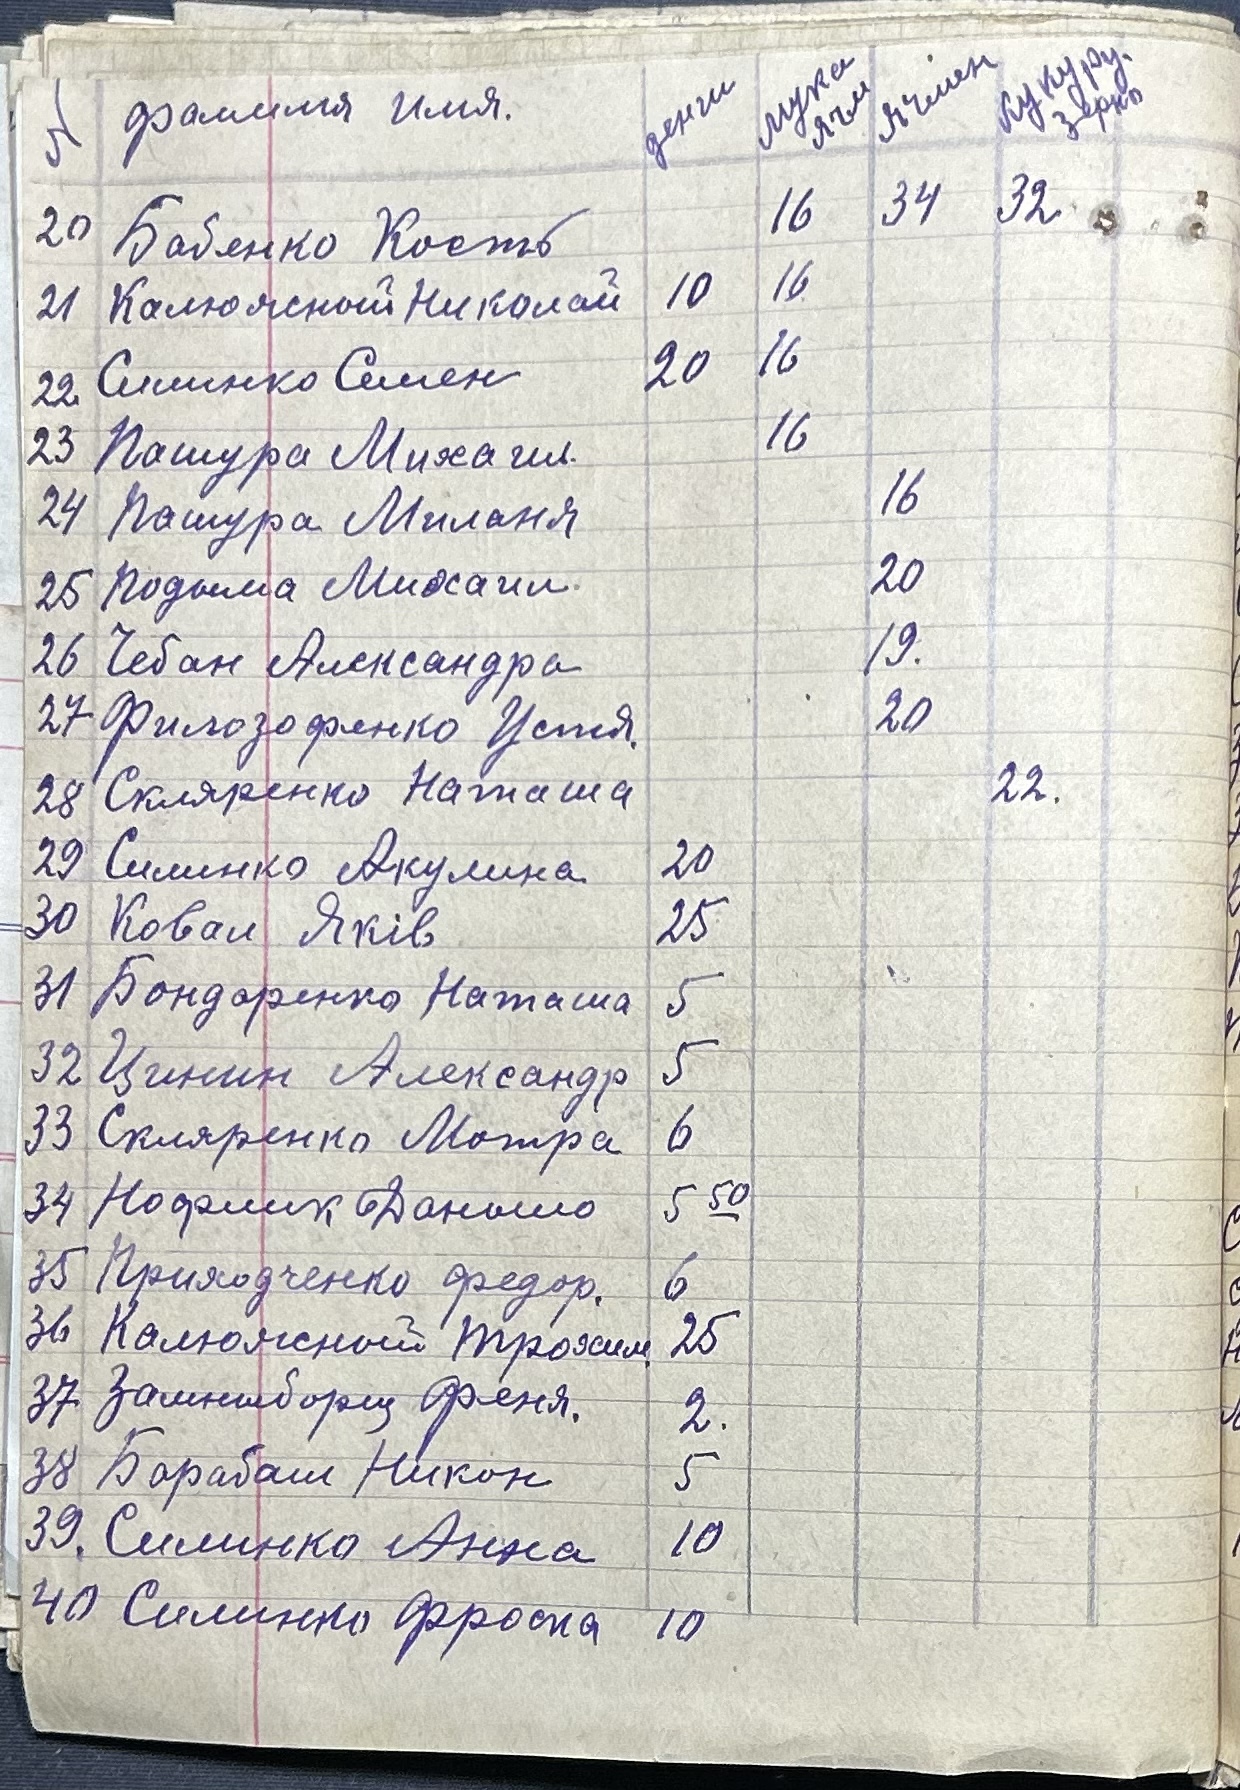 № фамилия имя. денги мука ячм ячмен кукуру. зерно
20 Бабенко Кость 16 34 32.
21 Калюжный Николай 10 16
22. Силинко Семен 20 16
23 Пашура Михаил. 16
24 Пашура Миланя 16
25 Подыма Михаил. 20
26 Чебан Александра 19.
27 Филозофенко Устя. 20
28 Скляренко Наташа 22.
29 Силинко Акулина. 20
30 Ковал Яків 25
31 Бондаренко Наташа 5
32 Цинин Александр 5
33 Скляренко Мотра 6
34 Данило 5 50
35 Приходченко федор. 6
36 Калюжный Трохим. 25
37. Феня. 2.
38 Барабаш Никон 5
39. Силинко Анна 10
40 Силинко Фроска 10